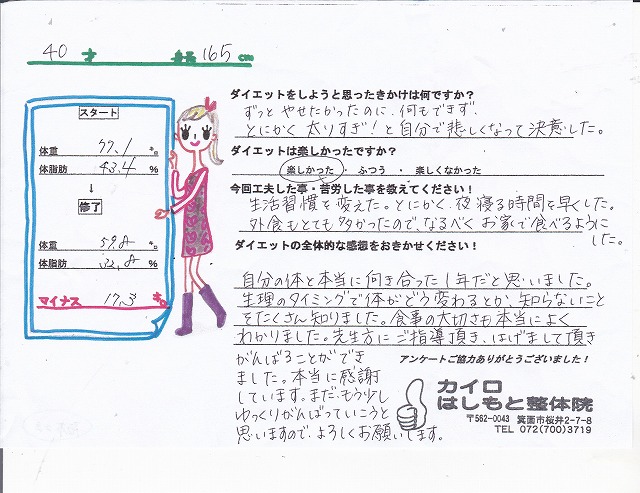 40 才 身長 165 cm
スタート
体重 77.1 kg
体脂肪 43.4 %
↓
修了
体重 59.8 kg
体脂肪 32.8 %
マイナス 17.3 kg
ダイエットをしようと思ったきかけは何ですか?
ずっと やせたかったのに、何もできず、
とにかく 太りすぎ!と自分で悲しくなって決意した。
ダイエットは楽しかったですか?
楽しかった ・ ふつう ・ 楽しくなかった
今回工夫した事・苦労した事を教えてください!
生活習慣を変えた。とにかく、夜寝る時間を早くした。
外食もとても多かったので、なるべく お家で食べるように
した。
ダイエットの全体的な感想をおきかせください!
自分の体と本当に向き合った1年だと思いました。
生理のタイミングで体がどう変わるとか、知らないこと
をたくさん知りました。食事の大切さも本当によく
わかりました。先生方にご指導頂き、はげまして頂き
がんばることができ
ました。本当に感謝
しています。まだ、もう少し
ゆっくりがんばっていこうと
思いますので、よろしくお願いします。
アンケートご協力ありがとうございました!
カイロ
はしもと整体院
〒562-0043 箕面市桜井2-7-8
TEL 072(700)3719